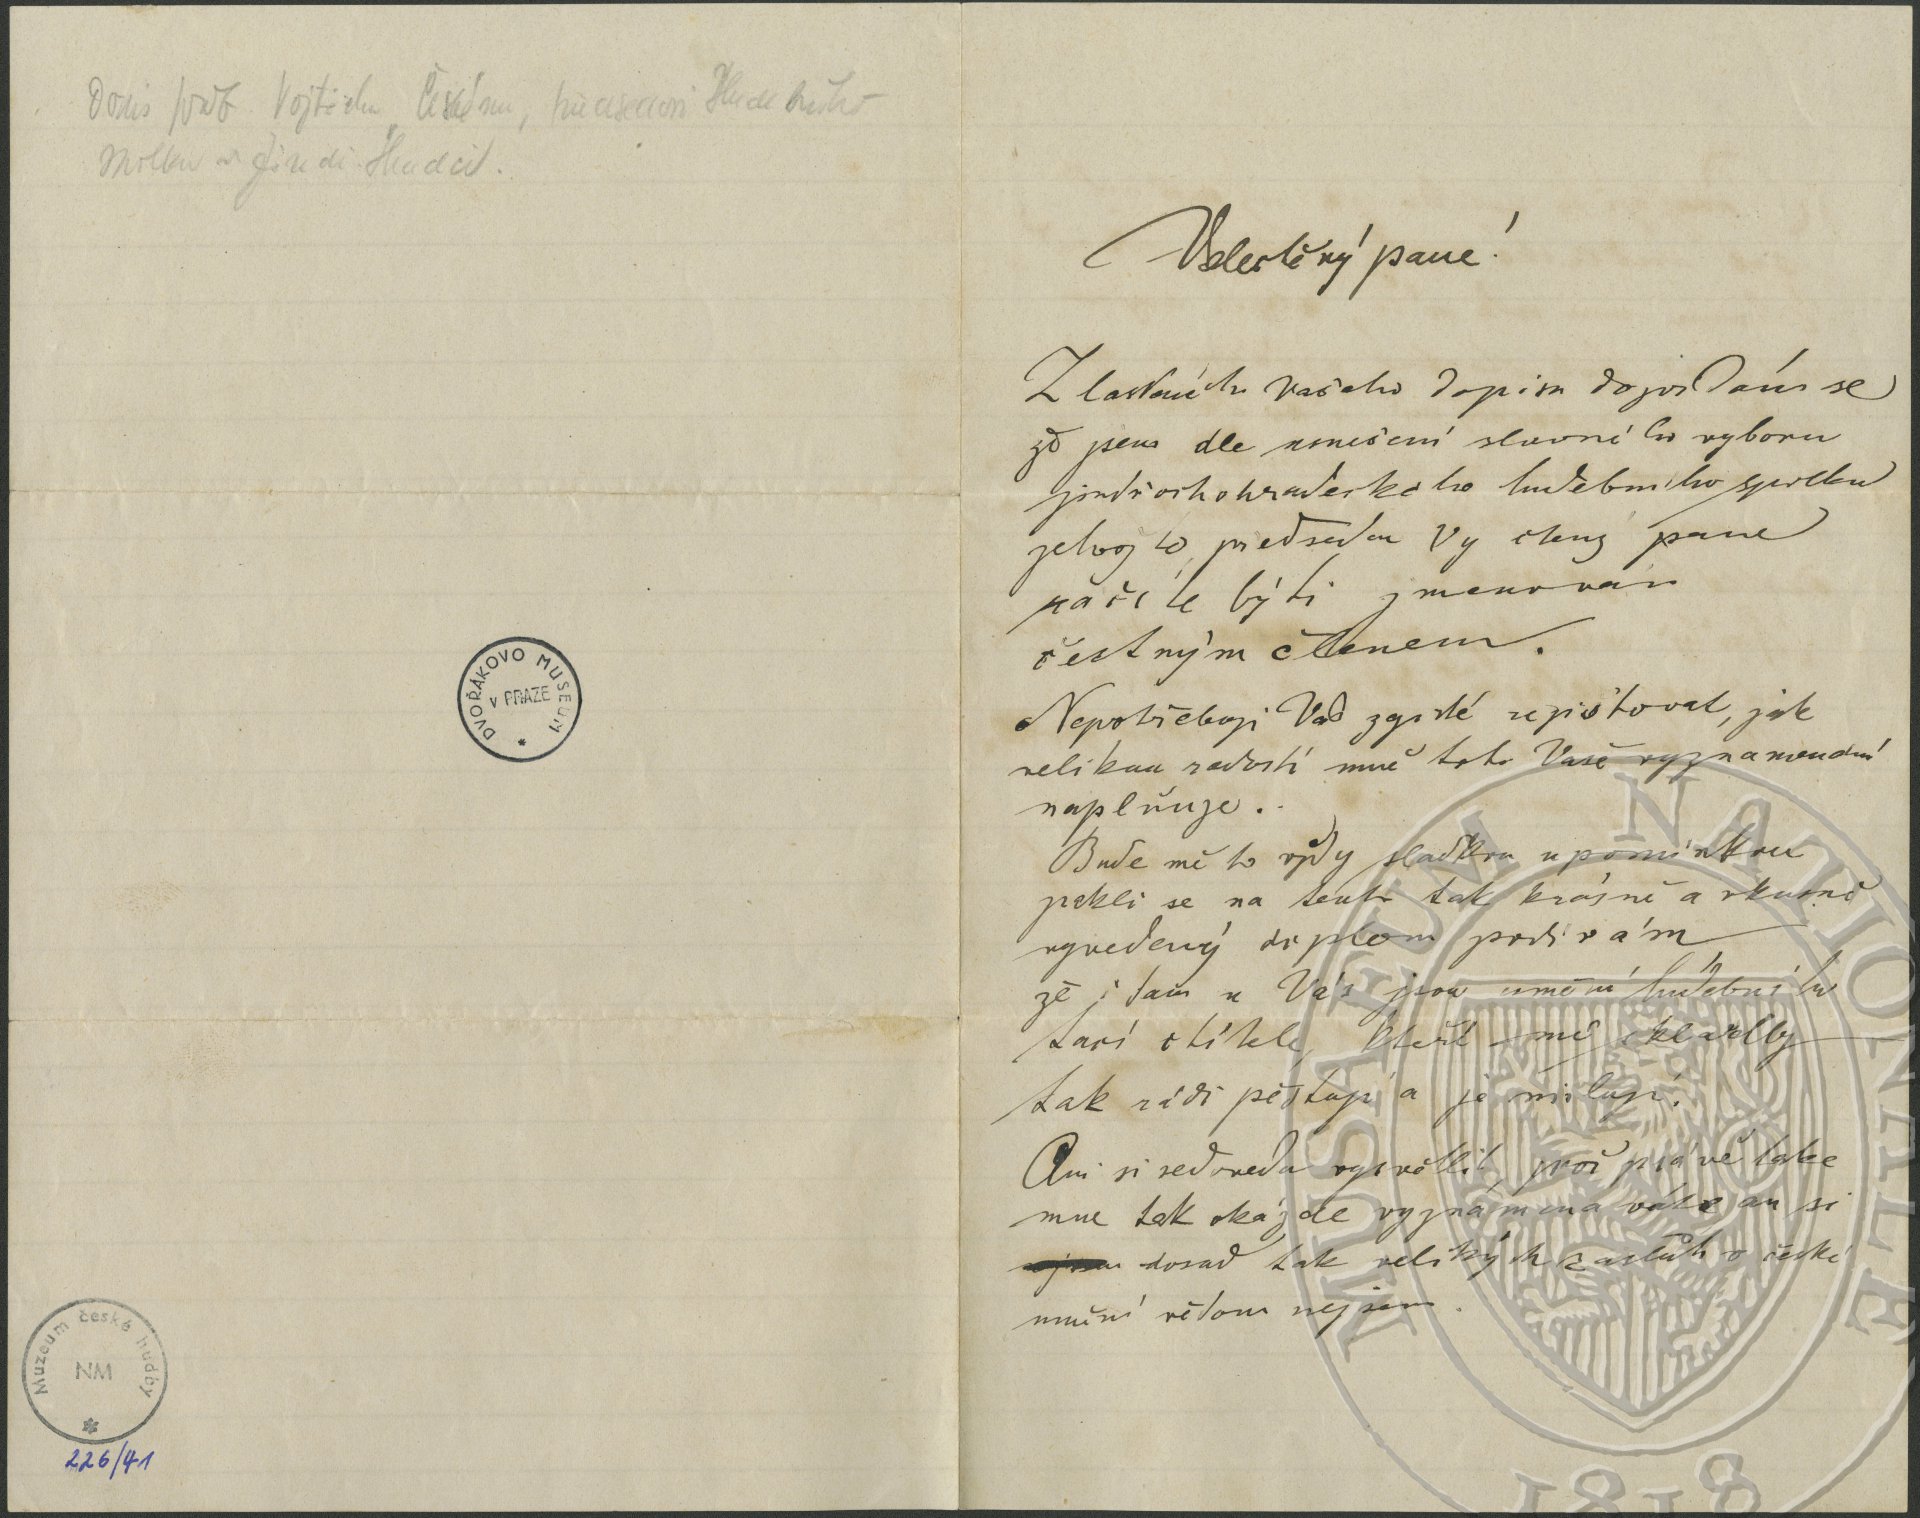 Dopis Vojtěchu
spolku v Jindř. Hradci.
DVOŘÁKOVO MUSEUM
V PRAZE
Muzeum české hudby
NM
226/41
Velectěný pane!
Z laskavého Vašeho dopisu dozvídám se
že jsem dle usnešení slavného vyboru
jindřichohradeckého hudebního spolku
jehož to předsedou Vy ctený pane
račíte býti jmenován
čestným členem.
Nepotřebuji Vás zajisté ujistovat, jak
velikou radostí mně toto Vaše vyznamenání
naplňuje.
Bude mě to vždy sladkou upomínkou
jakli se na tento tak krásně a vkusně
vyvedený diplom podívám
že i tam u Vás jsou umění hudebního
tací ctitelé, kteří mé skladby
tak rádi pěstují a je milují!
Ani si nedovedu vysvětlit, proč právě také
mne tak okázale vyznamenáváte an si
dosud tak velikých zásluh o české
umění vědom nejsem.
MUSAEUM NATIONALE
1818